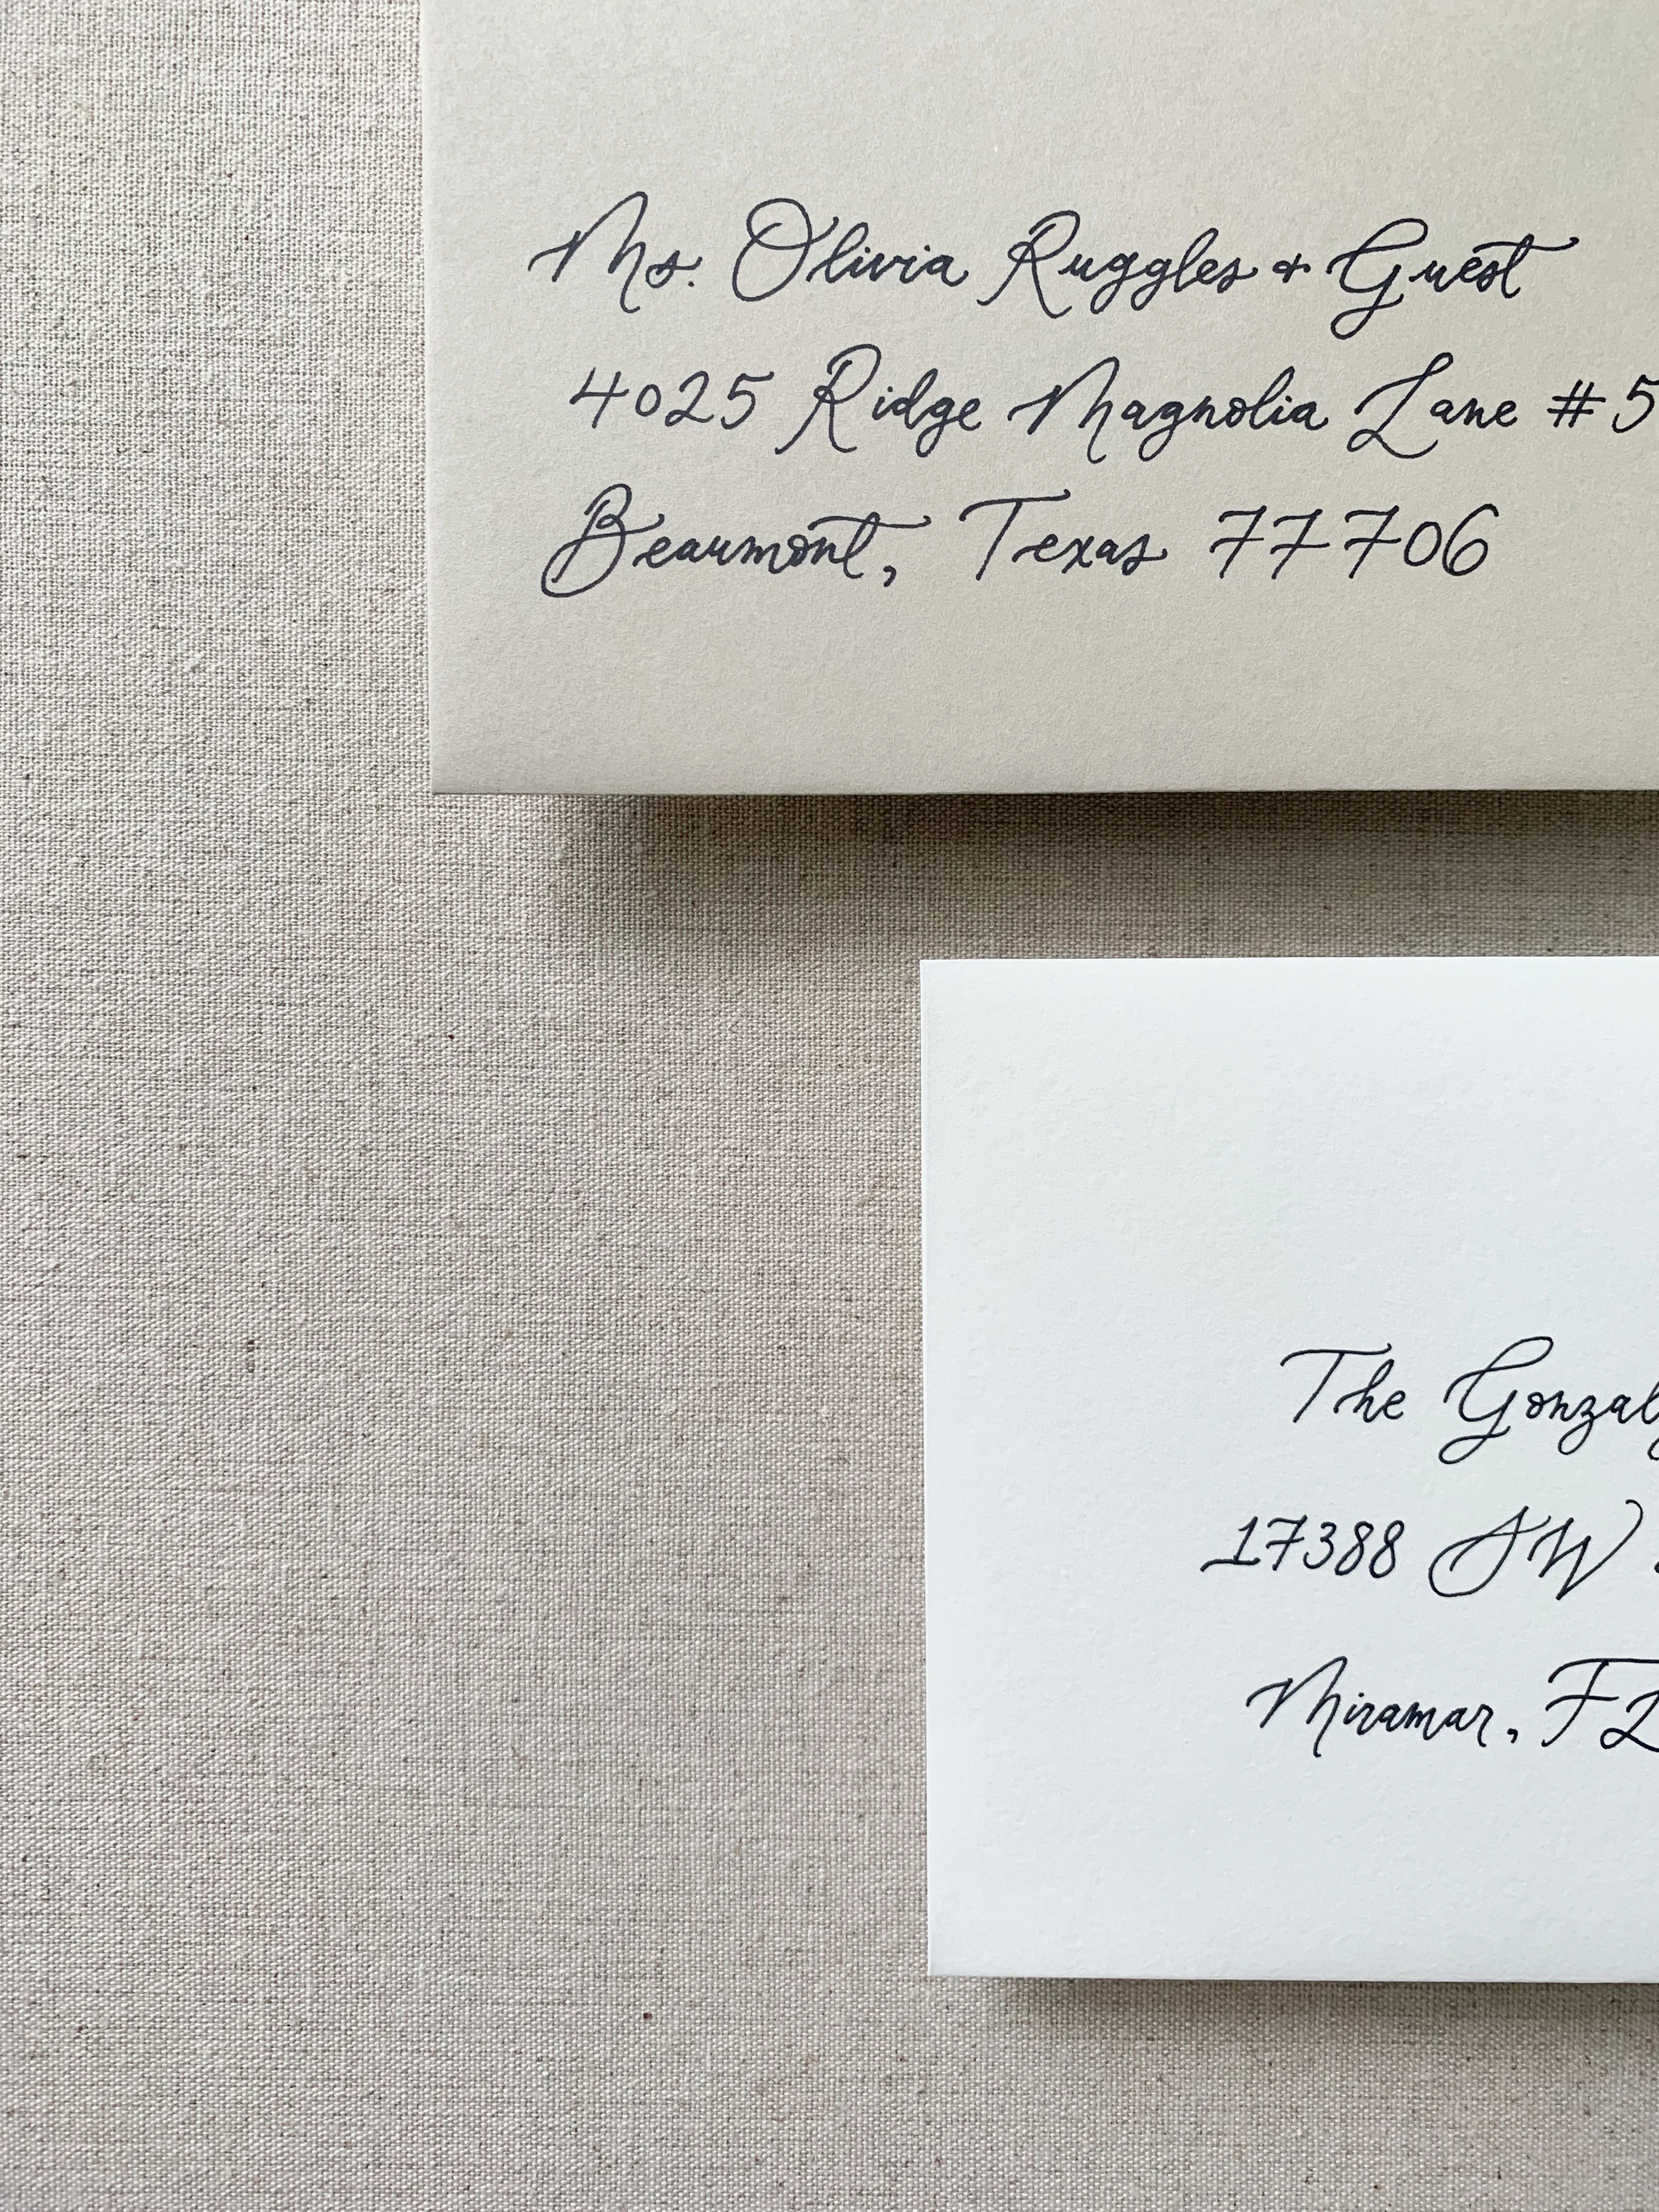 Ms. Olivia Ruggles & Guest
4025 Ridge Magnolia Lane #5
Beaumont, Texas 77706
The
17388 SW
Miramar, FL